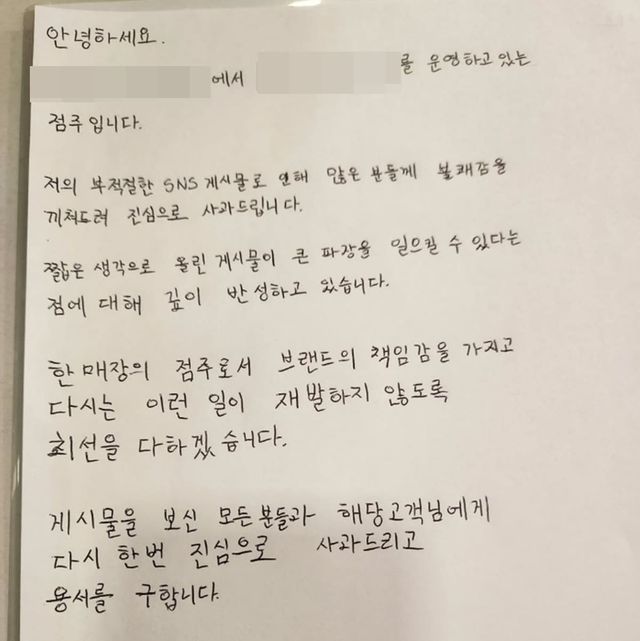 안녕하세요.
에서 를 운영하고 있는
점주입니다.
저의 부적절한 SNS 게시물로 인해 많은 분들께 불쾌감을
끼쳐드려 진심으로 사과드립니다.
짧은 생각으로 올린 게시물이 큰 파장을 일으킬 수 있다는
점에 대해 깊이 반성하고 있습니다.
한 매장의 점주로서 브랜드의 책임감을 가지고
다시는 이런 일이 재발하지 않도록
최선을 다하겠습니다.
게시물을 보신 모든분들과 해당고객님에게
다시 한번 진심으로 사과드리고
용서를 구합니다.